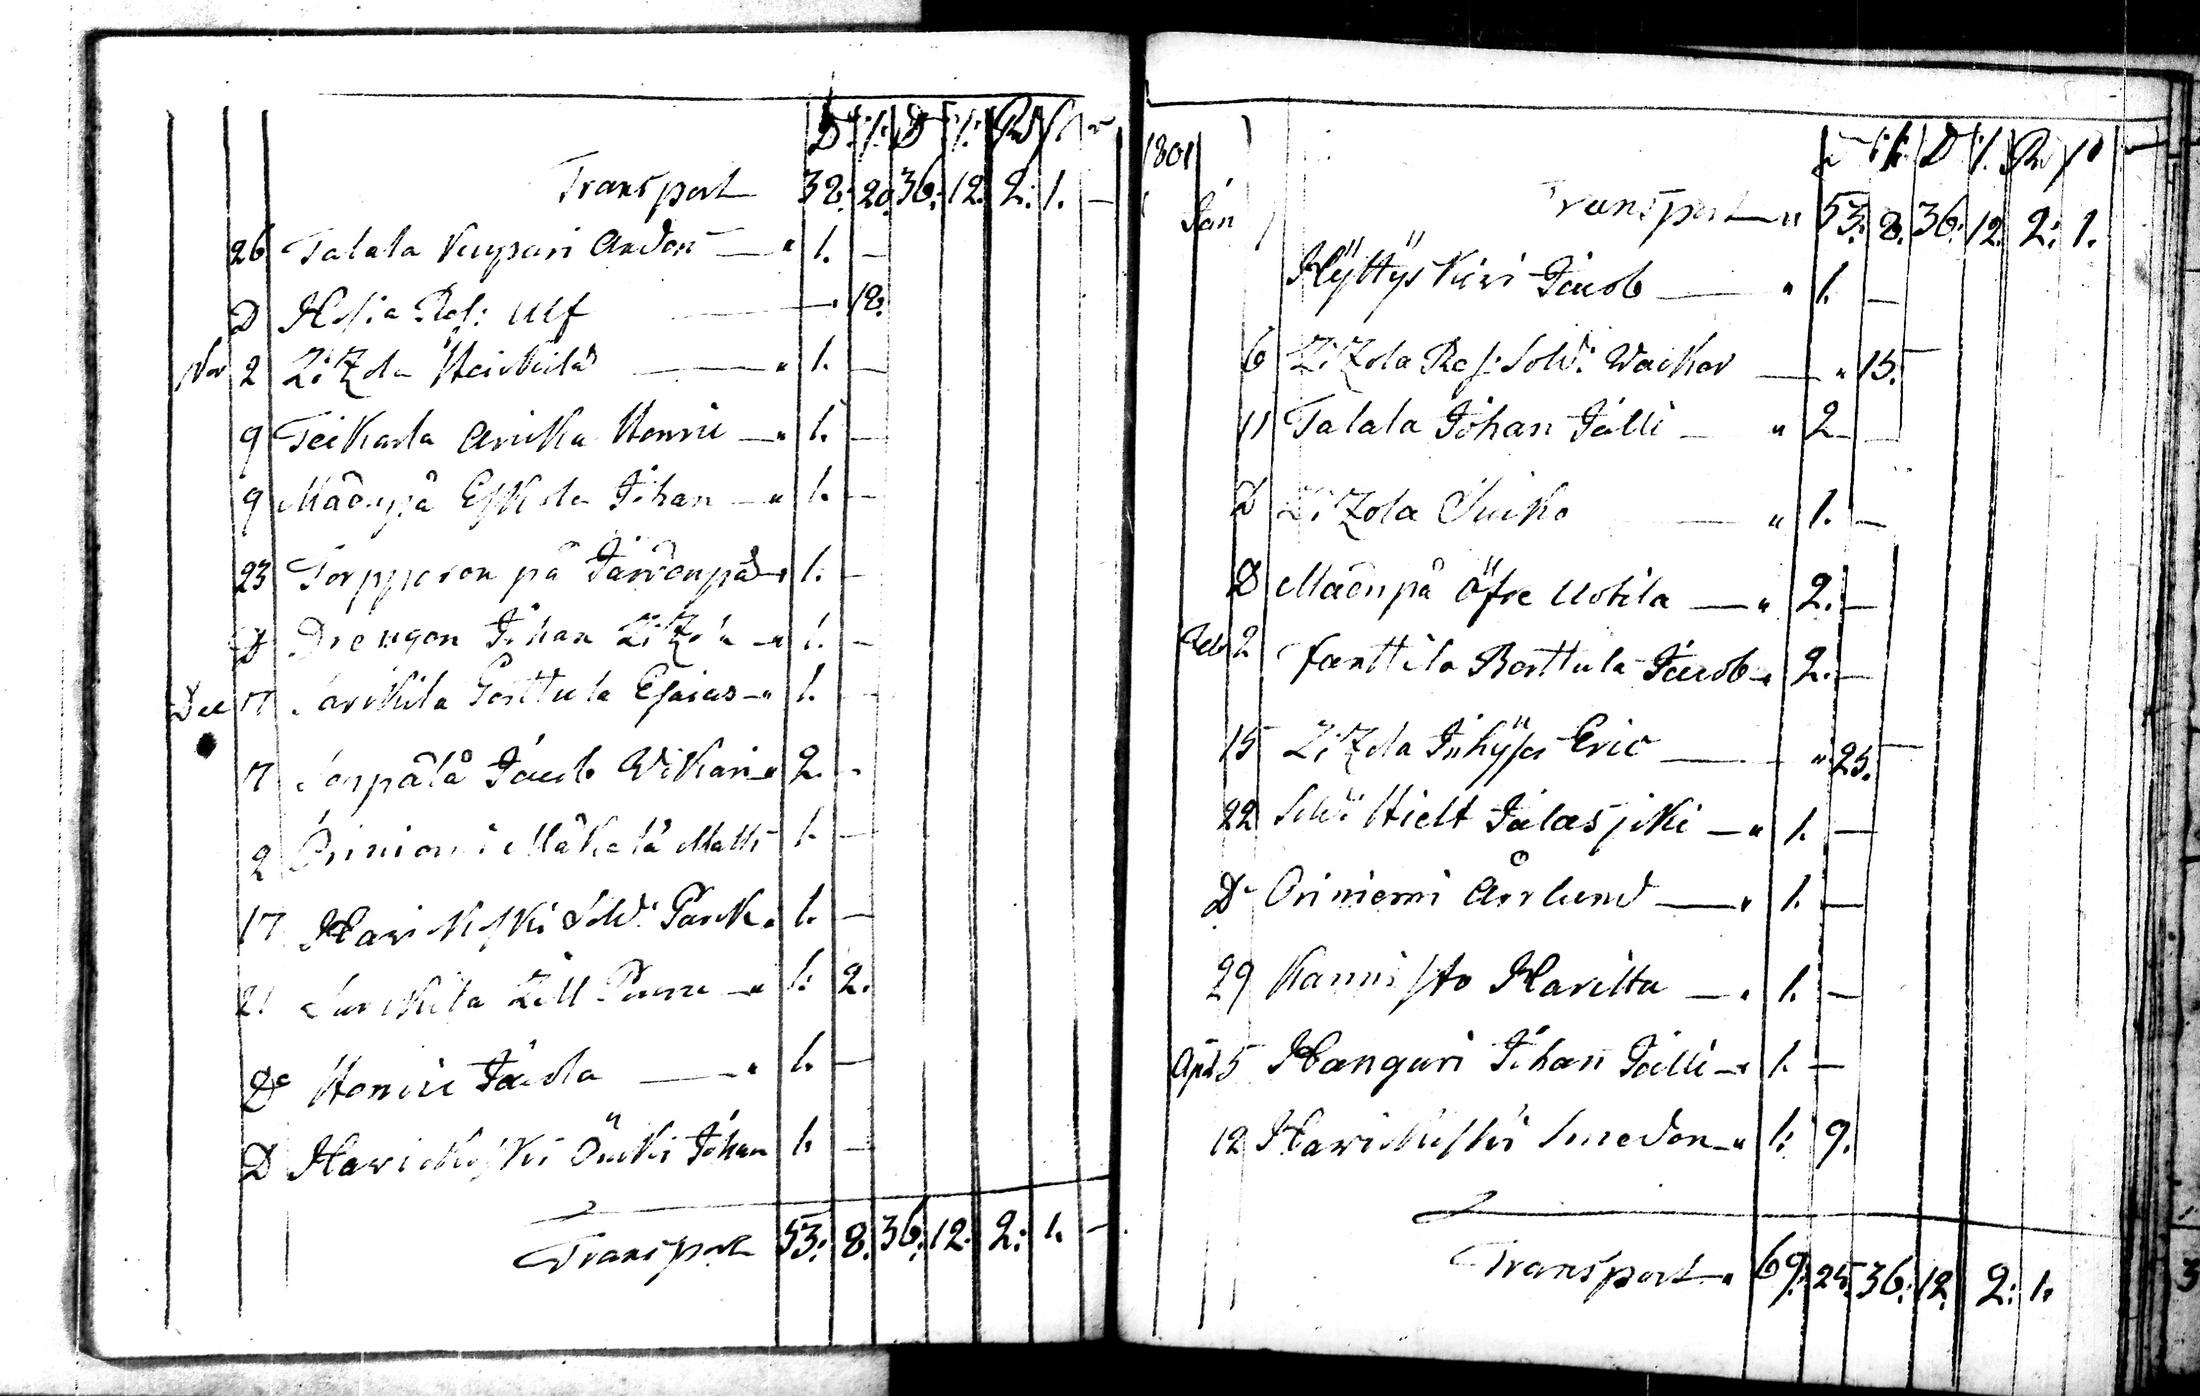 Transport 38: 20. 36: 12. 2: 1. —
26 Talala Knupari Anders — " 1. —
D Hosia Ref: Ulf — . 18.
Nov 2 Zitzola Heickilä — " 1. —
9 Teikarla Anicka Henric — " 1. —
9 Mäenpä Eskola Johan — " 1. —
23 Torpparen på Järvenpä — " 1. —
D Drengen Johan Zitzola — " 1. —
Dec 7 Sarikila Perttula Esaias — " 1. —
7 Jacob Wikari " 2. —
2 Oriniemi Mäkelä Matts 1. —
17 Haviokoski Sold: Pank. 1. —
21 Sarikila Zill — " 1: 2.
Do Henric Jacola — " 1. —
D Haviokoski Ömki Johan 1. —
Transport 53: 8. 36: 12: 2: 1. —
1801
Jan
Transport " 53: 8. 36: 12. 2: 1.
Hyttys Kivi Jacob — " 1. —
6 Zitzola Ref: Sold: Wacker — " 15. —
11 Talala Johan Jälli — " 2 —
D Zitzola — " 1. —
D Mäenpä Öfre Uotila — " 2. —
Feb 2 Fanttila Perttula Jacob " 2. —
15 Zitzola Eric — " 25. —
22 Sold: Hielt Jalasjoki — " 1. —
Do Oriniemi Åhrlund — " 1. —
29 Kannisto Haritta — " 1. —
Apr 5 Hanguri Johan Jälli — " 1. —
12 Haviokoski Smeden — " 1: 9.
Transport " 69: 25. 36: 12. 2: 1.